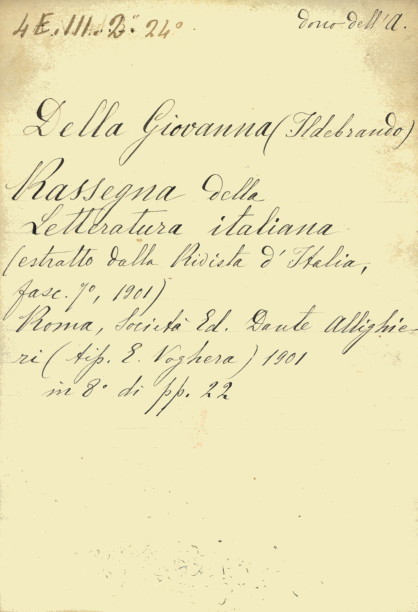 4 E. III. 2.° 24° dono dell'A.
Della Giovanna (Ildebrando)
Rassegna della
Letteratura italiana
(estratto dalla Rivista d'Italia,
fasc. 7°, 1901)
Roma, Società Ed. Dante Allighie-
ri (tip. E. Voghera) 1901
in 8° di pp. 22